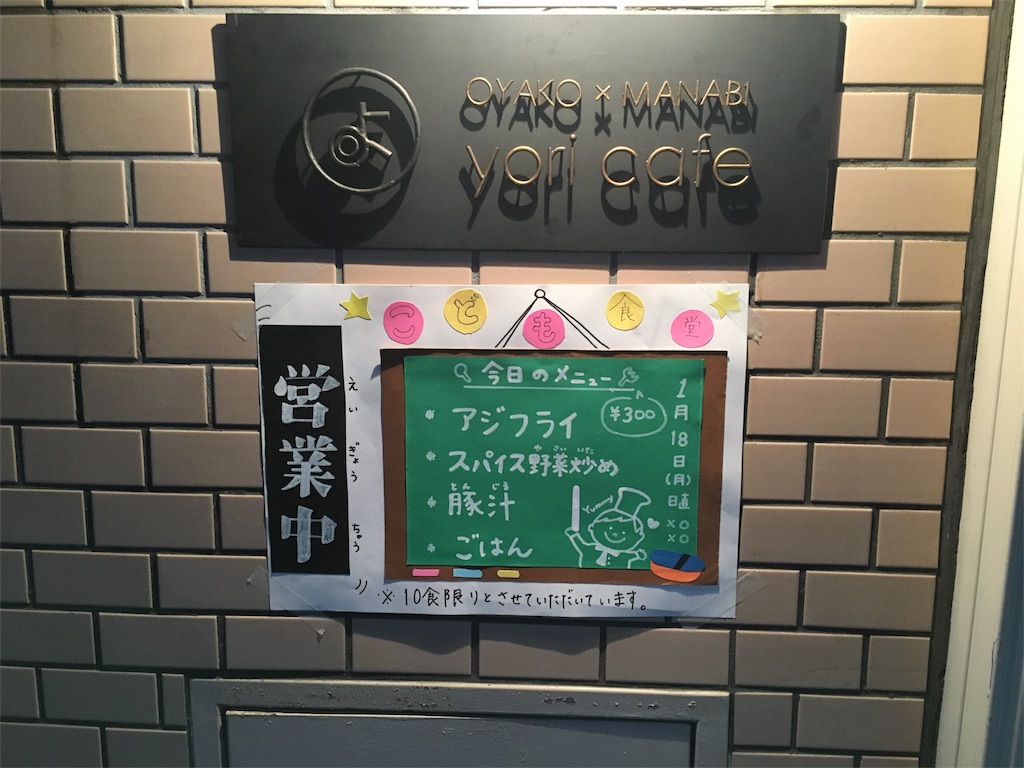 よ
OYAKO × MANABI
yori cafe
こども食堂
営業中
えいぎょうちゅう
今日のメニュー
¥300
アジフライ
やさいいた
スパイス野菜炒め
とんじる
豚汁
ごはん
Yummy
1月18日(月)
日直
×○
×○
※10食限りとさせていただいています。